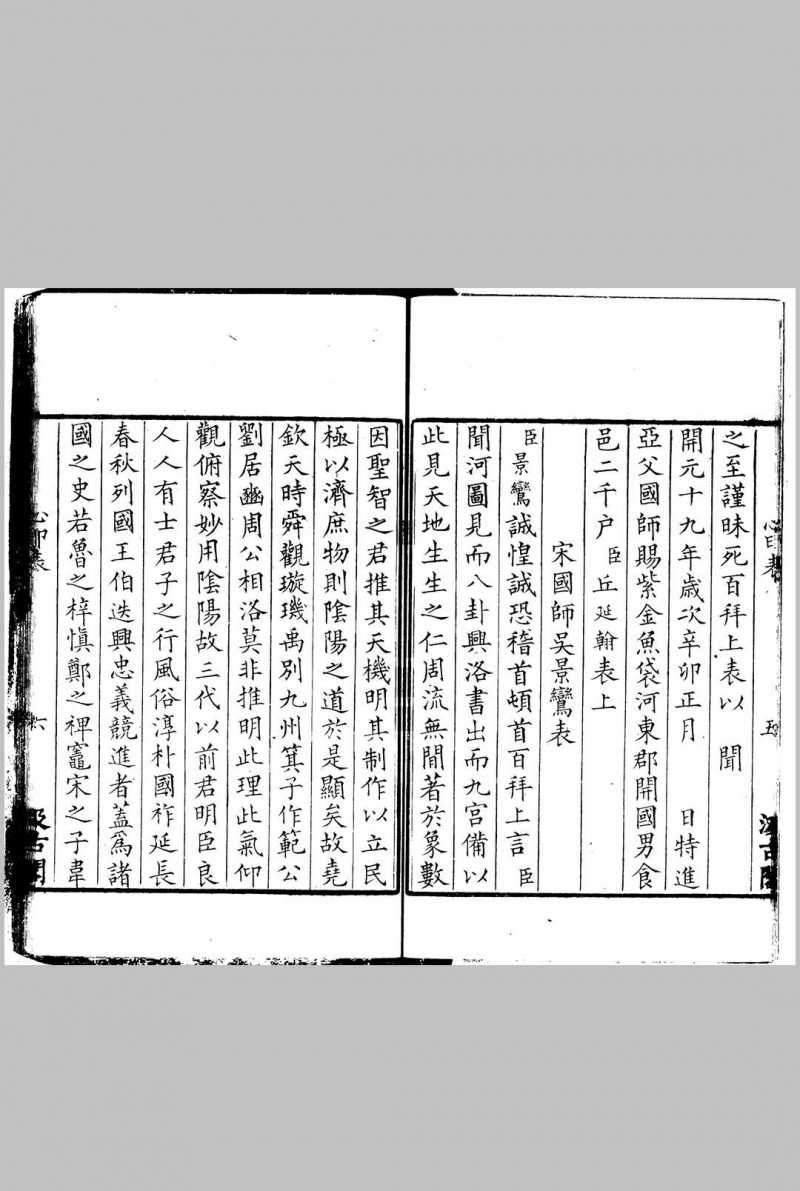 心印表
五
汲古閣
之至謹昧死百拜上表以聞
開元十九年歲次辛卯正月 日特進
亞父國師賜紫金魚袋河東郡開國男食
邑二千户臣丘延翰表上
宋國師吳景鸞表
臣景鸞誠惶誠恐稽首頓首百拜上言臣
聞河圖見而八卦興洛書出而九宮備以
此見天地生生之仁周流無閒著於象數
因聖智之君推其天機明其制作以立民
極以濟庶物則陰陽之道於是顯矣故堯
欽天時舜觀璇璣禹別九州箕子作範公
劉居豳周公相洛莫非推明此理此氣仰
觀俯察妙用陰陽故三代以前君明臣良
人人有士君子之行風俗淳朴國祚延長
春秋列國王伯迭興忠義競進者蓋爲諸
國之史若魯之梓慎鄭之裨竈宋之子韋
心印表
六
汲古閣